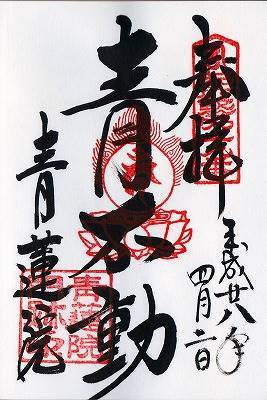 奉拝
平成廿八年
四月二日
青不動
青蓮院
青蓮院